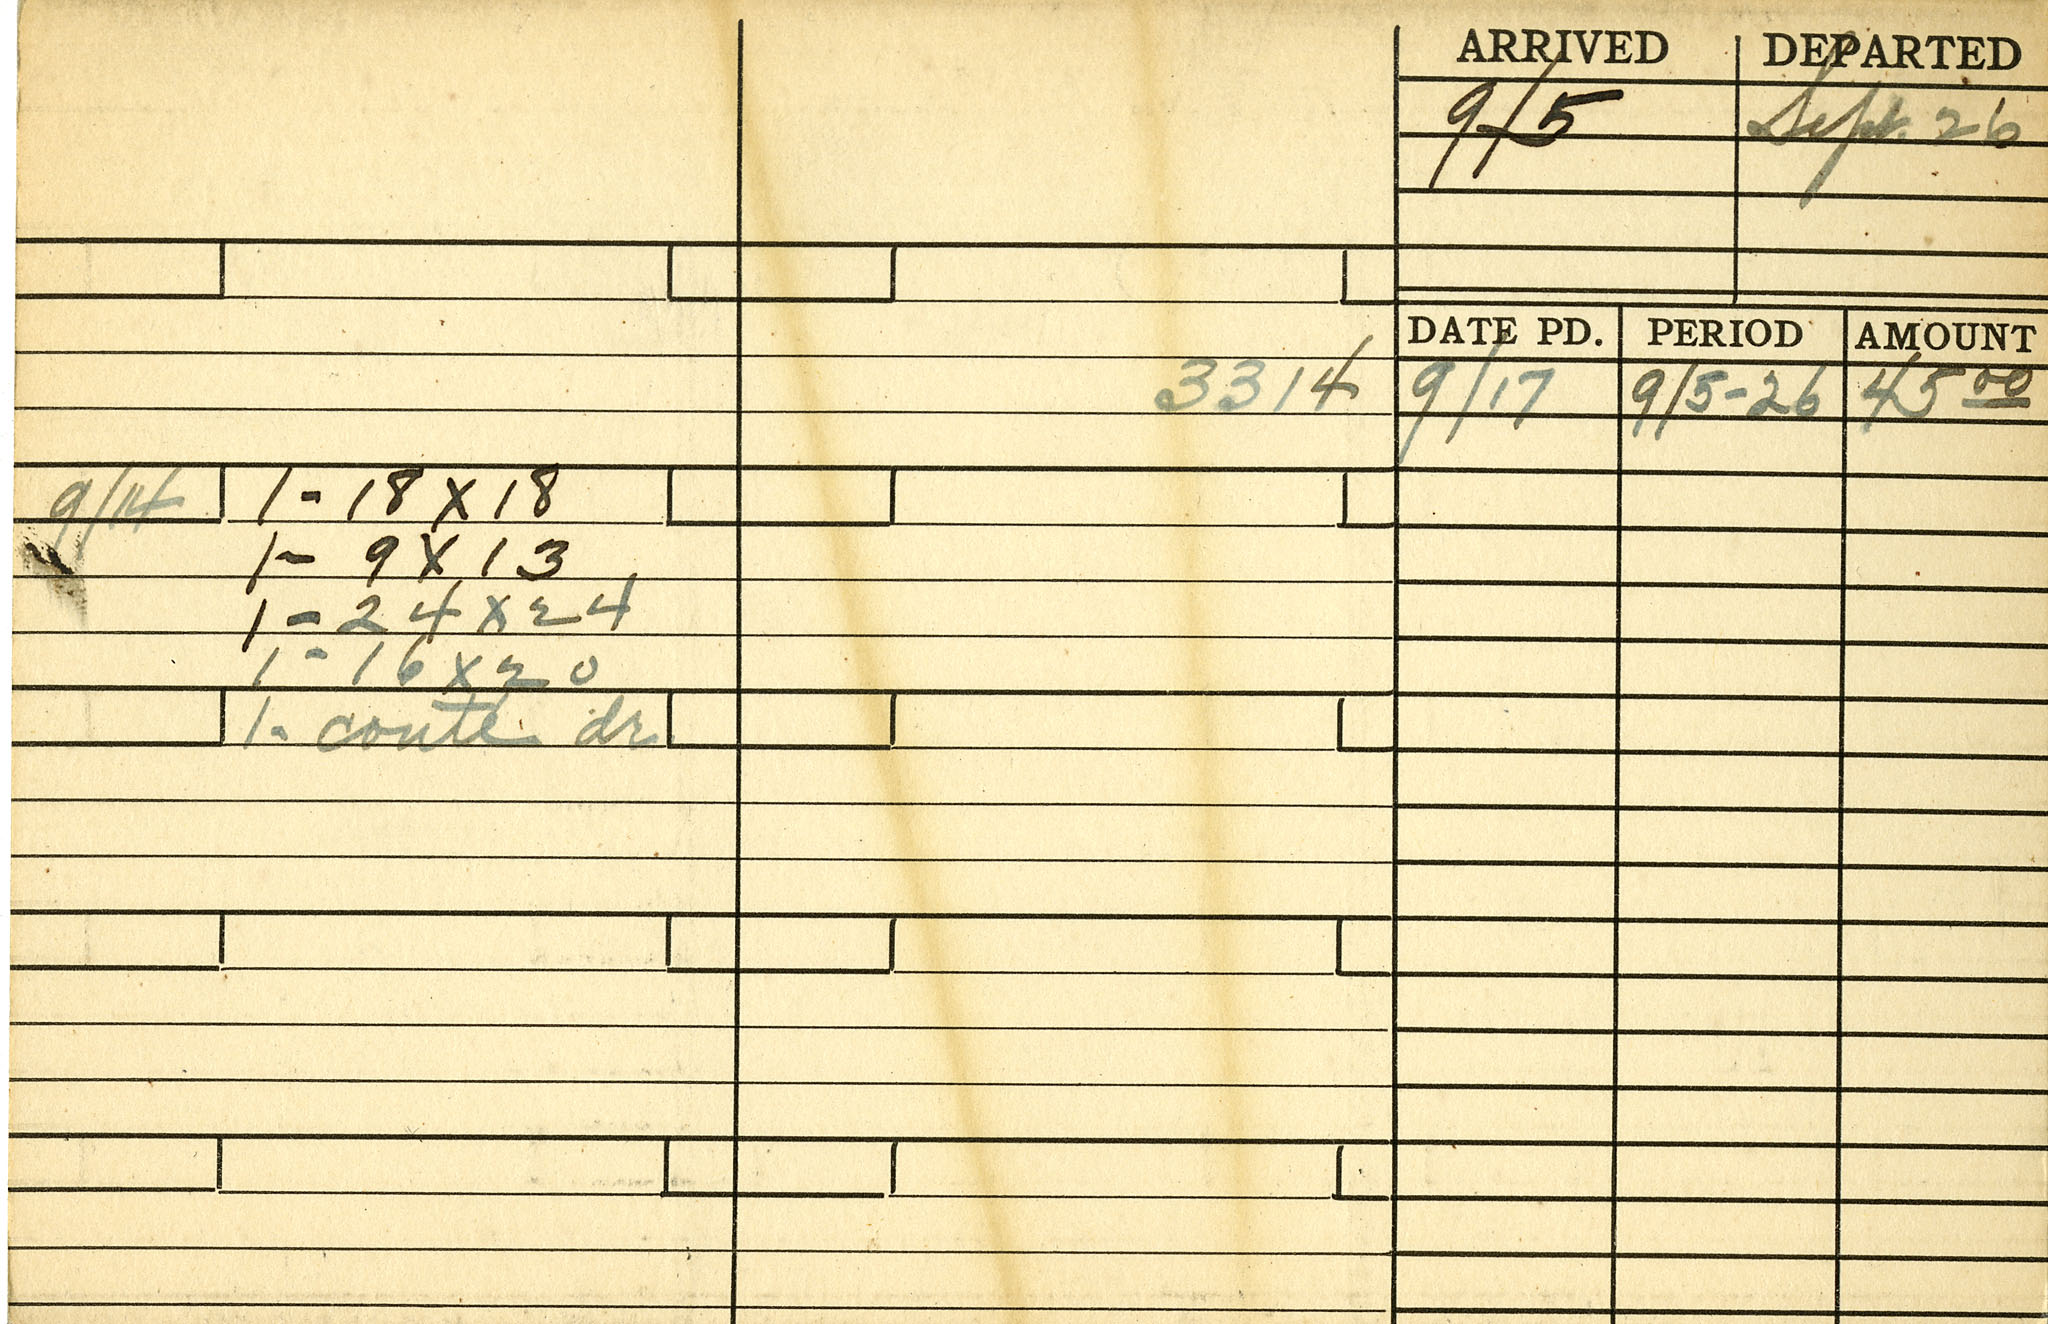 ARRIVED DEPARTED
9/5 Sept. 26
DATE PD. PERIOD AMOUNT
3314 9/17 9/5-26 45 00
9/14 1- 18 x 18
1- 9 x 13
1- 24 x 24
1- 16 x 20
1- conte dr.